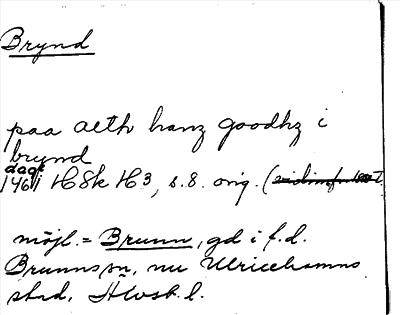 Brynd
paa aeth hanz goodhz i
brynd
daq.
1461 HSk H3, s. 8. orig. (
möjl. = Brunn, gd i f.d.
Brunns sn, nu Ulricehamns
stad, Älvsb. l.